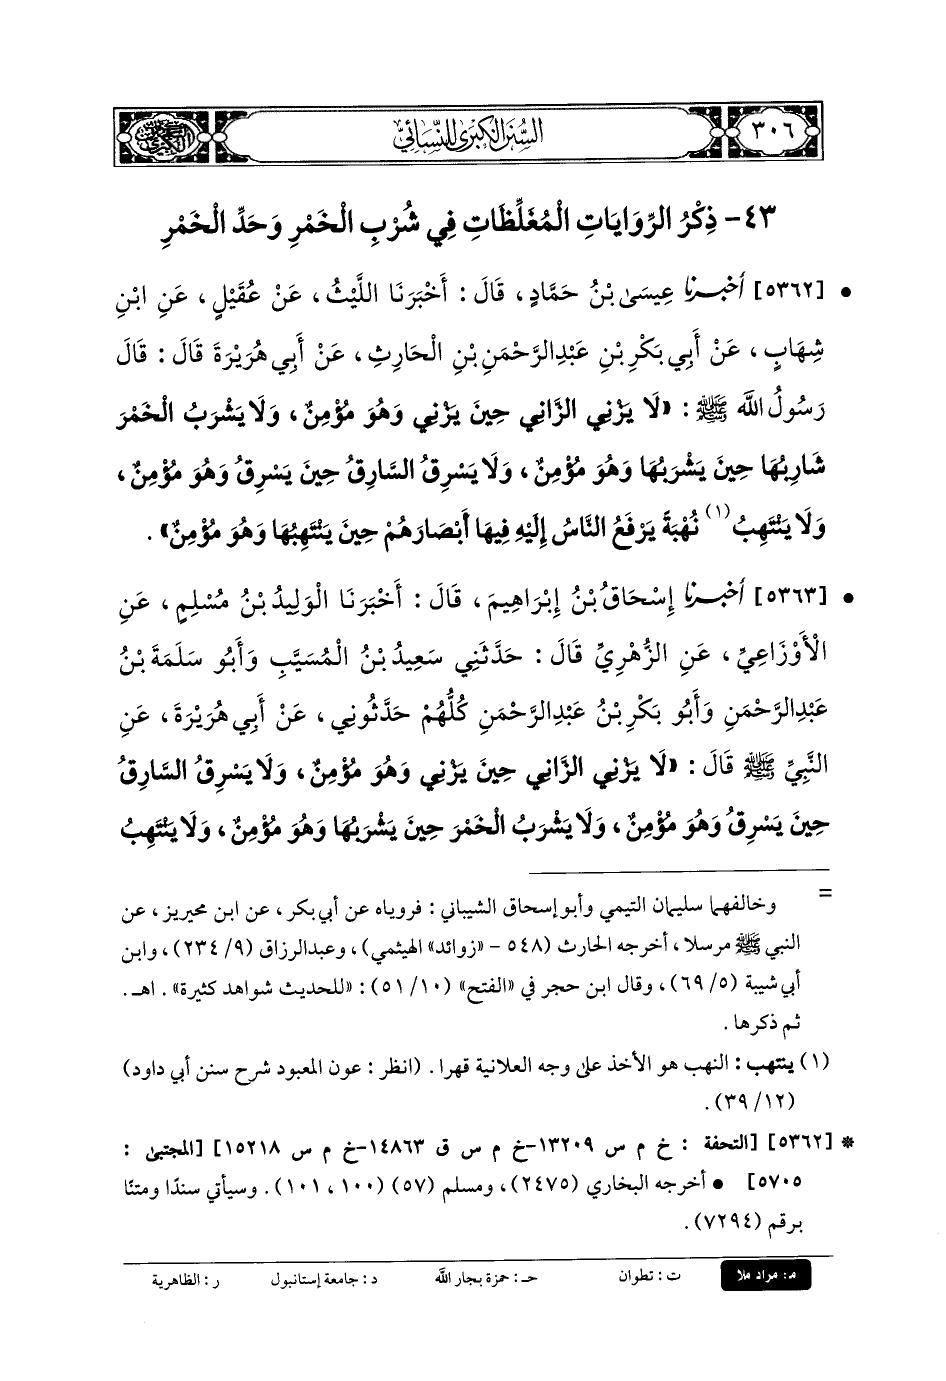 ٣٠٦
السُّنَنُ الْكُبْرَى لِلنَّسَائِيِّ
٤٣- ذِكْرُ الرِّوَايَاتِ الْمُغَلِّظَاتِ فِي شُرْبِ الْخَمْرِ وَحَدِّ الْخَمْرِ
• [٥٣٦٢] أخبرنا عِيسَى بْنُ حَمَّادٍ، قَالَ: أَخْبَرَنَا اللَّيْثُ، عَنْ عُقَيْلٍ، عَنِ ابْنِ
شِهَابٍ، عَنْ أَبِي بَكْرِ بْنِ عَبْدِالرَّحْمَنِ بْنِ الْحَارِثِ، عَنْ أَبِي هُرَيْرَةَ قَالَ: قَالَ
رَسُولُ اللَّه ﷺ: «لَا يَزْنِي الزَّانِي حِينَ يَزْنِي وَهُوَ مُؤْمِنٌ، وَلَا يَشْرَبُ الْخَمْرَ
شَارِبُهَا حِينَ يَشْرَبُهَا وَهُوَ مُؤْمِنٌ، وَلَا يَسْرِقُ السَّارِقُ حِينَ يَسْرِقُ وَهُوَ مُؤْمِنٌ،
وَلَا يَنْتَهِبُ(١) نُهْبَةً يَرْفَعُ النَّاسُ إِلَيْهِ فِيهَا أَبْصَارَهُمْ حِينَ يَنْتَهِبُهَا وَهُوَ مُؤْمِنٌ».
• [٥٣٦٣] أخبرنا إِسْحَاقُ بْنُ إِبْرَاهِيمَ، قَالَ: أَخْبَرَنَا الْوَلِيدُ بْنُ مُسْلِمٍ، عَنِ
الْأَوْزَاعِيِّ، عَنِ الزُّهْرِيِّ قَالَ: حَدَّثَنِي سَعِيدُ بْنُ الْمُسَيَّبِ وَأَبُو سَلَمَةَ بْنُ
عَبْدِالرَّحْمَنِ وَأَبُو بَكْرِ بْنُ عَبْدِالرَّحْمَنِ كُلُّهُمْ حَدَّثُونِي، عَنْ أَبِي هُرَيْرَةَ، عَنِ
النَّبِيِّ ﷺ قَالَ: «لَا يَزْنِي الزَّانِي حِينَ يَزْنِي وَهُوَ مُؤْمِنٌ، وَلَا يَسْرِقُ السَّارِقُ
حِينَ يَسْرِقُ وَهُوَ مُؤْمِنٌ، وَلَا يَشْرَبُ الْخَمْرَ حِينَ يَشْرَبُهَا وَهُوَ مُؤْمِنٌ، وَلَا يَنْتَهِبُ
= وخالفهما سليمان التيمي وأبو إسحاق الشيباني: فروياه عن أبي بكر، عن ابن محيريز، عن
النبي ﷺ مرسلا، أخرجه الحارث (٥٤٨ - «زوائد» الهيثمي)، وعبدالرزاق (٩/ ٢٣٤)، وابن
أبي شيبة (٥/ ٦٩)، وقال ابن حجر في «الفتح» (١٠/ ٥١): «للحديث شواهد كثيرة». اهـ.
ثم ذكرها.
(١) ينتهب: النهب هو الأخذ على وجه العلانية قهرا. (انظر: عون المعبود شرح سنن أبي داود)
(١٢/ ٣٩).
* [٥٣٦٢] [التحفة: خ م س ١٣٢٠٩-خ م س ق ١٤٨٦٣-خ م س ١٥٢١٨] [المجتبى:
٥٧٠٥] • أخرجه البخاري (٢٤٧٥)، ومسلم (٥٧) (١٠٠، ١٠١). وسيأتي سندًا ومتنًا
برقم (٧٢٩٤).
م: مراد ملا ت: تطوان حـ: حمزة بجار اللَّه د: جامعة إستانبول ر: الظاهرية